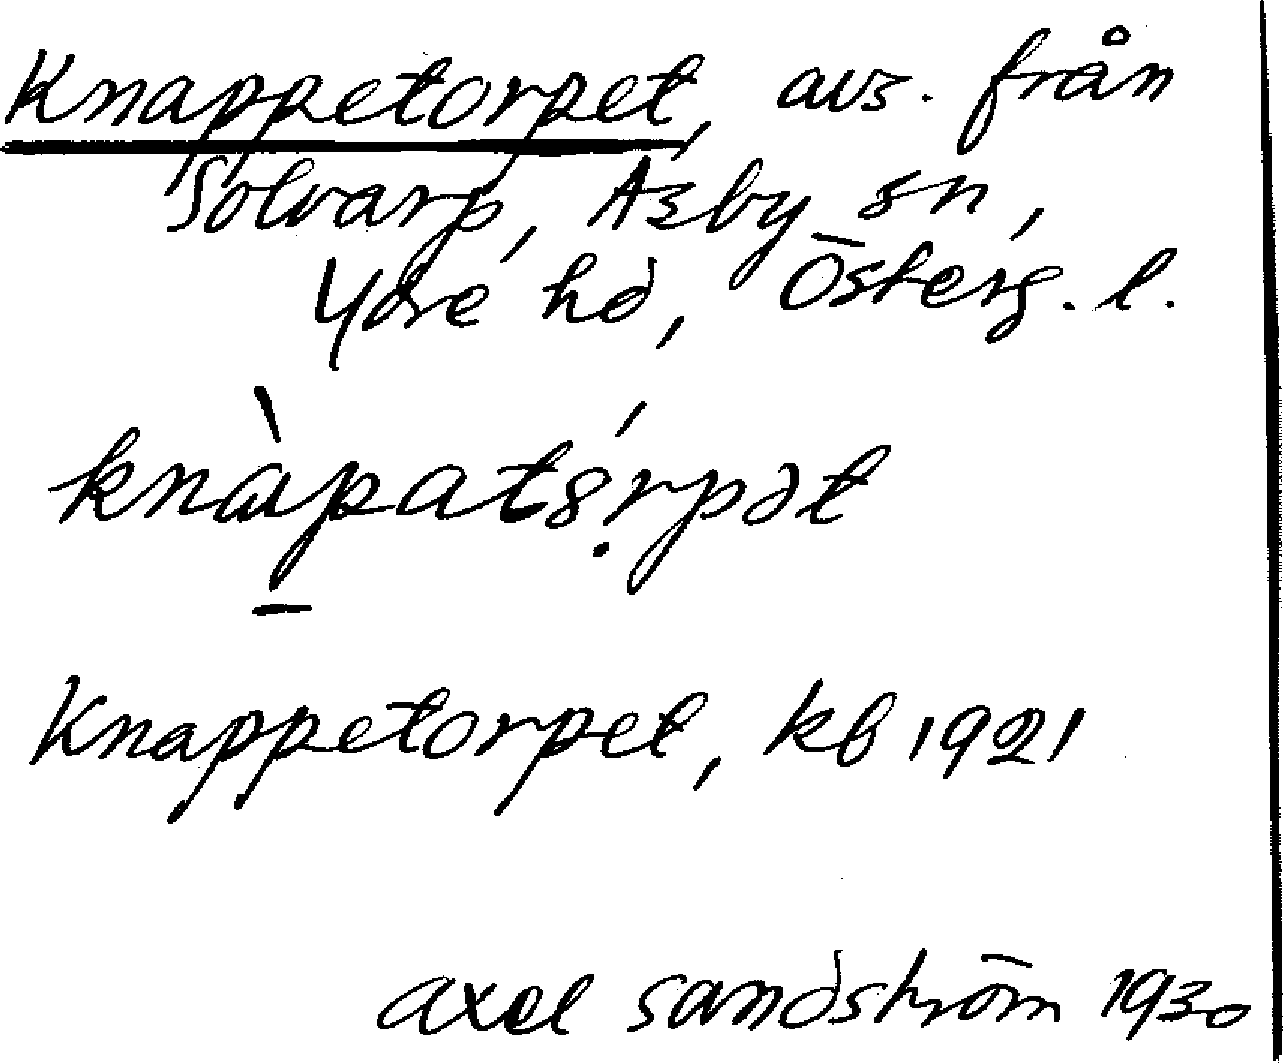 Knappetorpet, avs. från
Solvarp, Asby sn,
Ydre hd, Österg. l.
knàpatǫ́rpət
Knappetorpet, kb 1921
axel sandström 1930